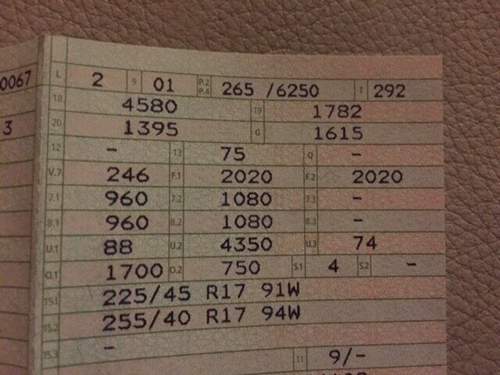 0067 L 2 9 01 P.2 P.4 265 /6250 T 292
18 4580 19 1782
3 20 1395 G 1615
12 - 13 75 Q -
V.7 246 F.1 2020 F.2 2020
7.1 960 7.2 1080 7.3 -
8.1 960 8.2 1080 8.3 -
U.1 88 U.2 4350 U.3 74
O.1 1700 O.2 750 S.1 4 S.2 -
15.1 225/45 R17 91W
15.2 255/40 R17 94W
15.3 -
11 9/-